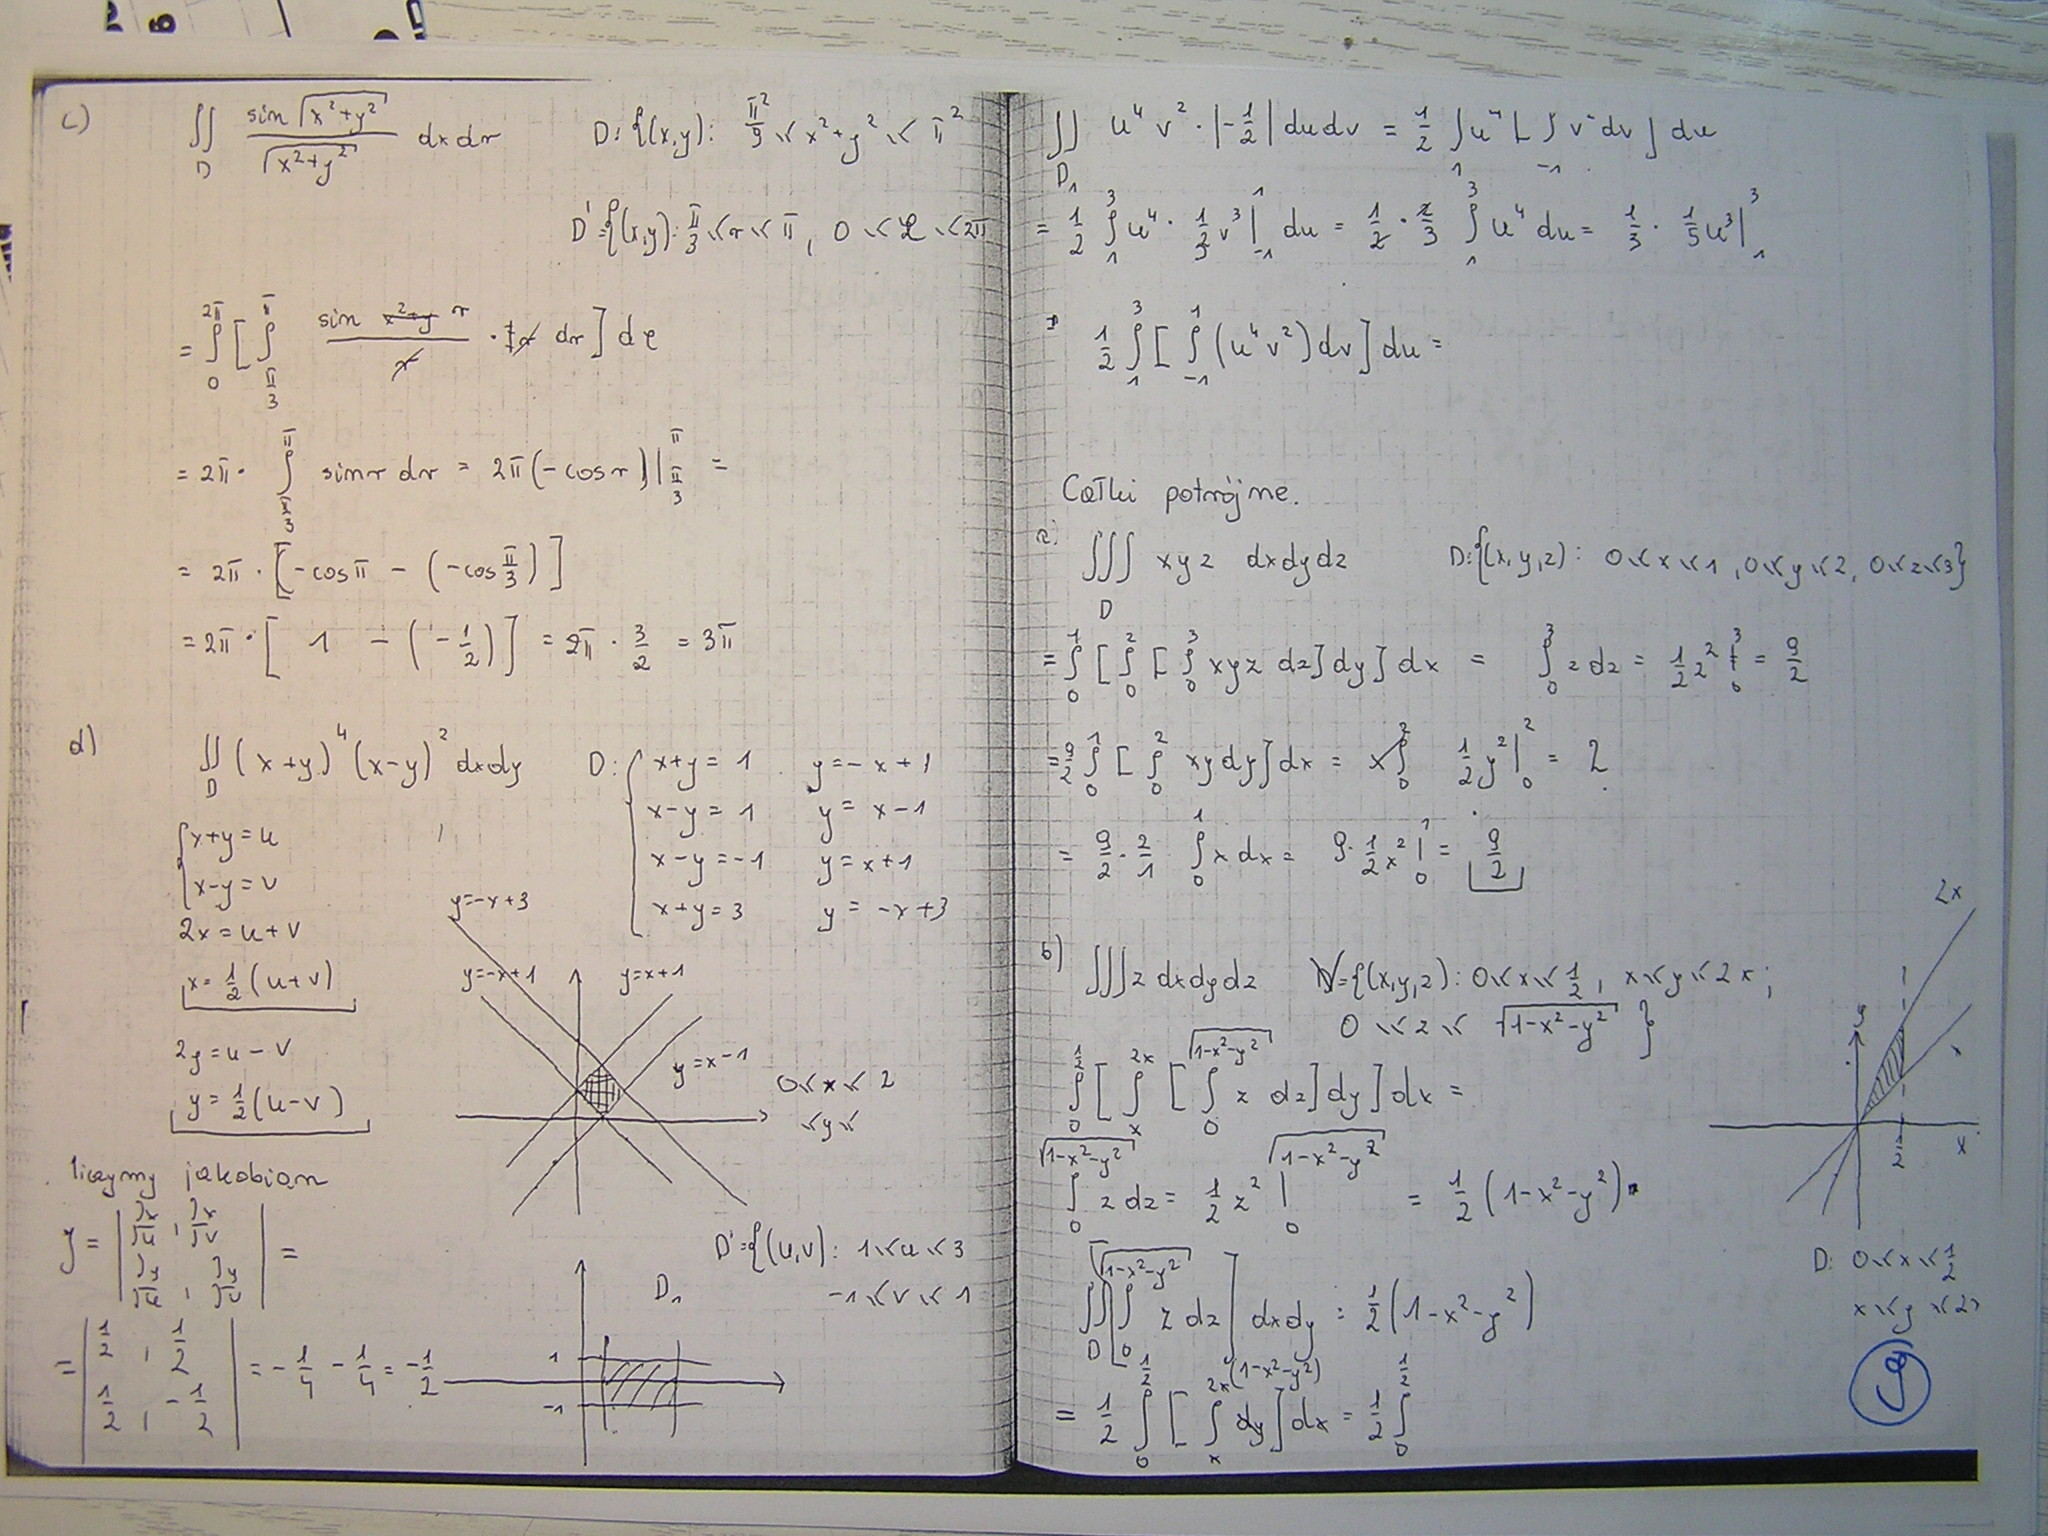 c) ∬_D sin√(x²+y²) / √(x²+y²) dxdr D: {(x,y): π²/9 ≤ x²+y² ≤ π²
D' = {(x,y): π/3 ≤ r ≤ π, 0 ≤ φ ≤ 2π
= ∫_0^{2π} [ ∫_{π/3}^{π} sin r / r · r dr ] dφ
= 2π · ∫_{π/3}^{π} sin r dr = 2π(-cos r)|_{π/3}^{π} =
= 2π · [-cos π - (-cos π/3)]
= 2π · [ 1 - (-1/2)] = 2π · 3/2 = 3π
d) ∬_D (x+y)⁴ (x-y)² dxdy D: { x+y = 1 y = -x+1
x-y = 1 y = x-1
x-y = -1 y = x+1
x+y = 3 y = -x+3
{ x+y = u
x-y = v
2x = u+v
x = 1/2 (u+v)
2y = u-v
y = 1/2 (u-v)
y=-x+3
y=-x+1 y=x+1
y=x-1
0 ≤ x ≤ 2
≤ y ≤
liczymy jakobian
J = | ∂x/∂u , ∂x/∂v
∂y/∂u , ∂y/∂v | =
= | 1/2 , 1/2
1/2 , -1/2 | = -1/4 - 1/4 = -1/2
D' = {(u,v): 1 ≤ u ≤ 3
-1 ≤ v ≤ 1
D₁
1
-1
∬_{D₁} u⁴ v² · |-1/2| du dv = 1/2 ∫_1 u⁴ [ ∫_{-1} v² dv ] du
= 1/2 ∫_1^3 u⁴ · 1/3 v³ |_{-1}^1 du = 1/2 · 2/3 ∫_1^3 u⁴ du = 1/3 · 1/5 u³ |_1^3
1/2 ∫_1^3 [ ∫_{-1}^1 (u⁴v²) dv ] du =
Całki potrójne.
a) ∭_D xyz dxdydz D: {(x,y,z): 0 ≤ x ≤ 1, 0 ≤ y ≤ 2, 0 ≤ z ≤ 3}
= ∫_0^1 [ ∫_0^2 [ ∫_0^3 xyz dz] dy] dx = ∫_0^3 z dz = 1/2 z² |_0^3 = 9/2
= 9/2 ∫_0^1 [ ∫_0^2 xy dy] dx = x ∫_0^2 1/2 y² |_0^2 = 2
= 9/2 · 2/1 ∫_0^1 x dx = 9 · 1/2 x² |_0^1 = 9/2
b) ∭ z dxdydz V = {(x,y,z): 0 ≤ x ≤ 1/2, x ≤ y ≤ 2x;
0 ≤ z ≤ √(1-x²-y²) }
∫_0^{1/2} [ ∫_x^{2x} [ ∫_0^{√(1-x²-y²)} z dz] dy] dx =
∫_0^{√(1-x²-y²)} z dz = 1/2 z² |_0^{√(1-x²-y²)} = 1/2 (1-x²-y²)
∬_D [ ∫_0^{√(1-x²-y²)} z dz ] dxdy = 1/2 (1-x²-y²)
= 1/2 ∫_0^{1/2} [ ∫_x^{2x} (1-x²-y²) dy] dx = 1/2 ∫_0^{1/2}
2x
y
x
1/2
x
D: 0 ≤ x ≤ 1/2
x ≤ y ≤ 2x